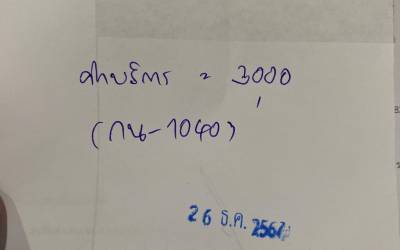 ค่าบริการ = 3,000
(กน-1040)
26 ธ.ค. 2567